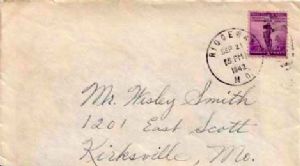 RIDGEWAY
SEP 21
5 PM
1942
MO.
Mr. Wesley Smith
1201 East Scott
Kirksville Mo.